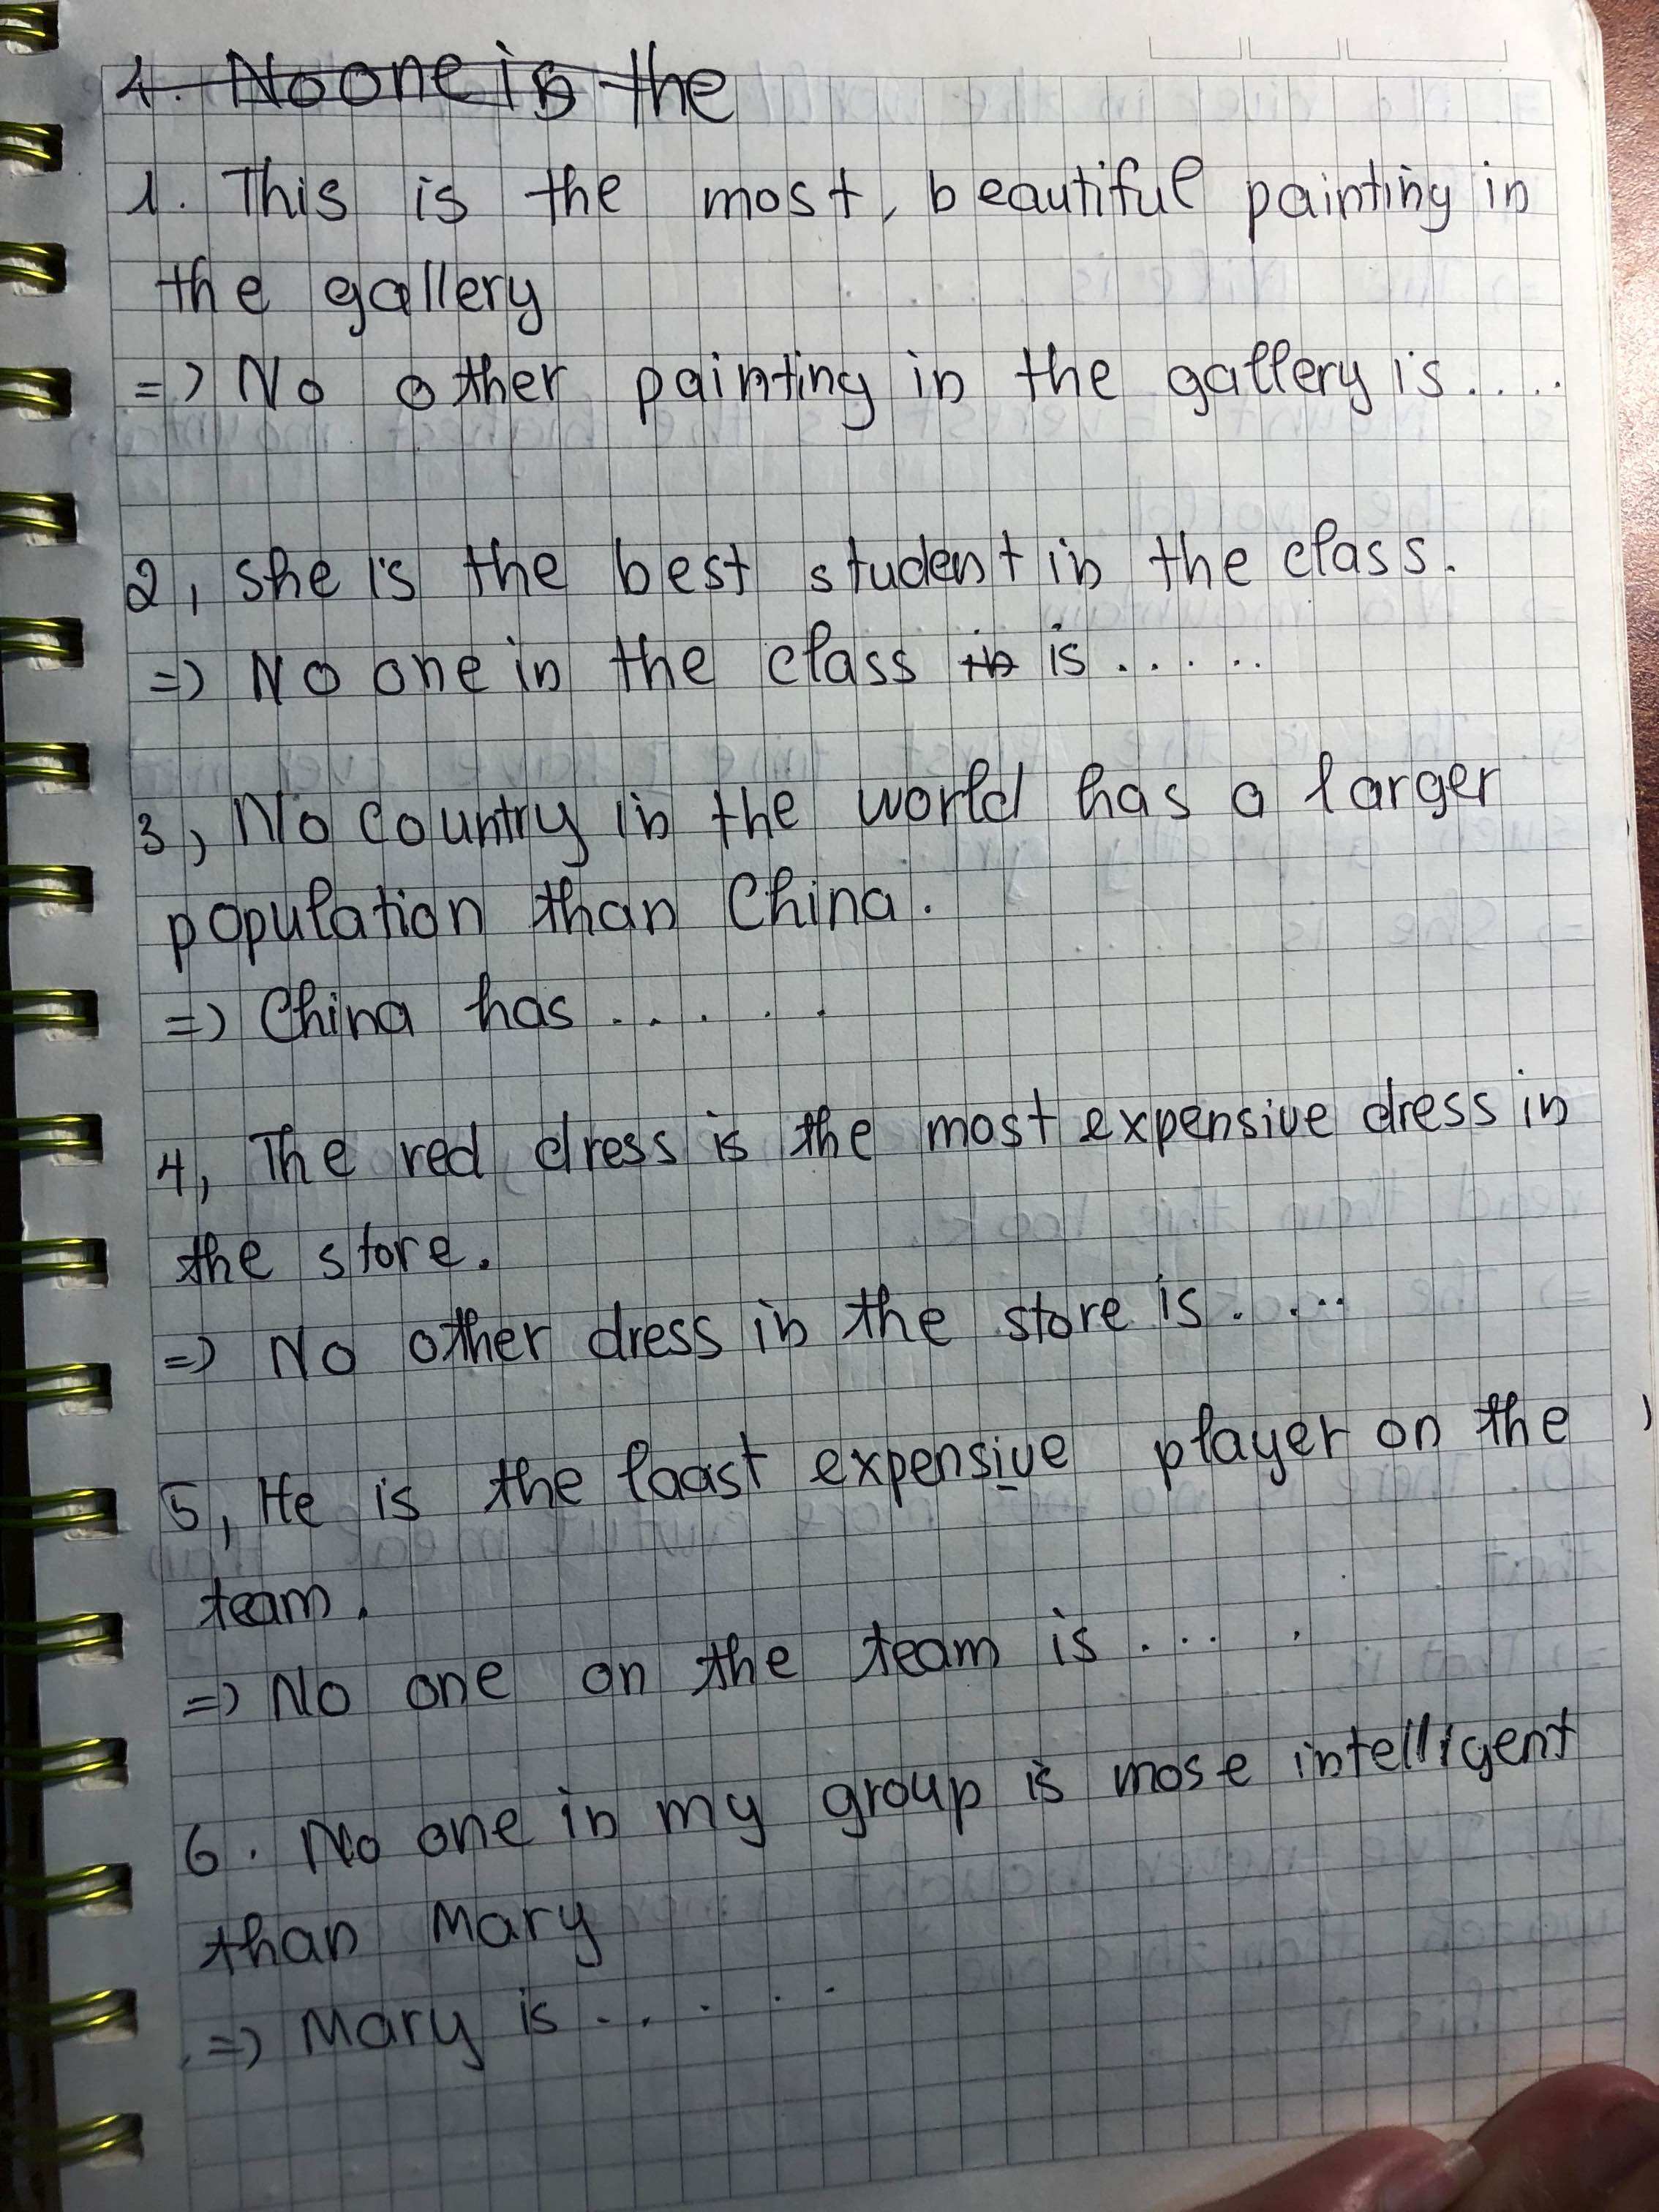 4. No one is the
1. This is the most, beautiful painting in
the gallery
=> No other painting in the gallery is.....
2, she is the best student in the class.
=> No one in the class in is.....
3, No country in the world has a larger
population than China.
=> China has.....
4, The red dress is the most expensive dress in
the store.
=> No other dress in the store is.....
5, He is the laast expensive player on the
team.
=> No one on the team is.....
6. No one in my group is mose intelligent
than Mary
=> Mary is.....